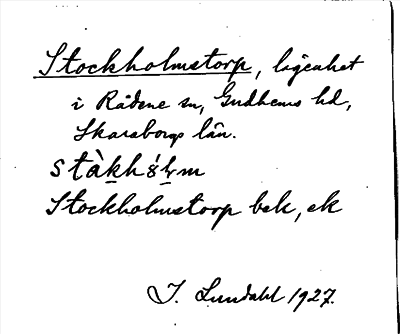 Stockholmstorp, lägenhet
i Rådene sn, Gudhems hd,
Skaraborgs län.
Stockholmstorp bek, ek
I. Lundahl 1927.